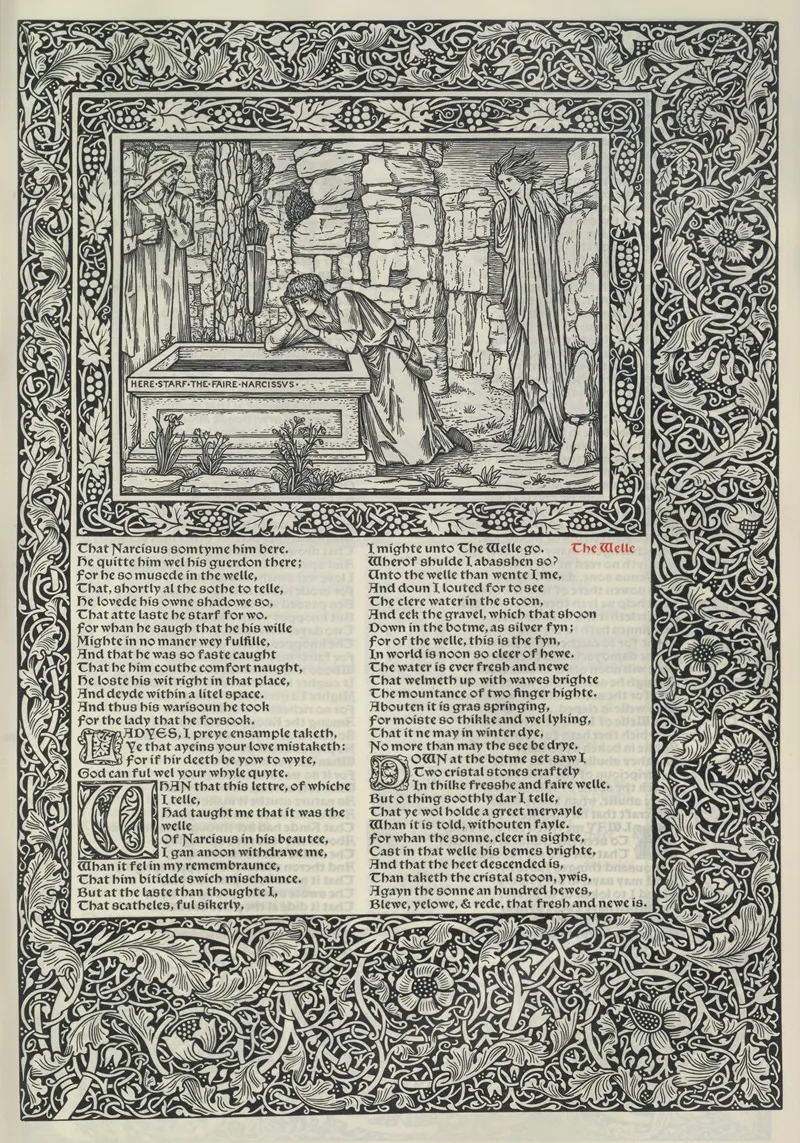 HERE·STARF·THE·FAIRE·NARCISSVS·
That Narcisus somtyme him bere.
He quitte him wel his guerdon there;
For he so musede in the welle,
That, shortly al the sothe to telle,
He lovede his owne shadowe so,
That atte laste he starf for wo.
For whan he saugh that he his wille
Mighte in no maner wey fulfille,
And that he was so faste caught
That he him couthe comfort naught,
He loste his wit right in that place,
And deyde within a litel space.
And thus his warisoun he took
For the lady that he forsook.
LADYES, I preye ensample taketh,
Ye that ayeins your love mistaketh:
For if hir deeth be yow to wyte,
God can ful wel your whyle quyte.
WHAN that this lettre, of whiche
I telle,
Had taught me that it was the
welle
Of Narcisus in his beautee,
I gan anoon withdrawe me,
Whan it fel in my remembraunce,
That him bitidde swich mischaunce.
But at the laste than thoughte I,
That scatheles, ful sikerly,
I mighte unto The Welle go. The Welle
Wherof shulde I abasshen so?
Unto the welle than wente I me,
And doun I louted for to see
The clere water in the stoon,
And eek the gravel, which that shoon
Down in the botme, as silver fyn;
For of the welle, this is the fyn,
In world is noon so cleer of hewe.
The water is ever fresh and newe
That welmeth up with wawes brighte
The mountance of two finger highte.
Abouten it is gras springing,
For moiste so thikke and wel lyking,
That it ne may in winter dye,
No more than may the see be drye.
DOWN at the botme set saw I
Two cristal stones craftely
In thilke fresshe and faire welle.
But o thing soothly dar I telle,
That ye wol holde a greet mervayle
Whan it is told, withouten fayle.
For whan the sonne, cleer in sighte,
Cast in that welle his bemes brighte,
And that the heet descended is,
Than taketh the cristal stoon, ywis,
Agayn the sonne an hundred hewes,
Blewe, yelowe, & rede, that fresh and newe is.